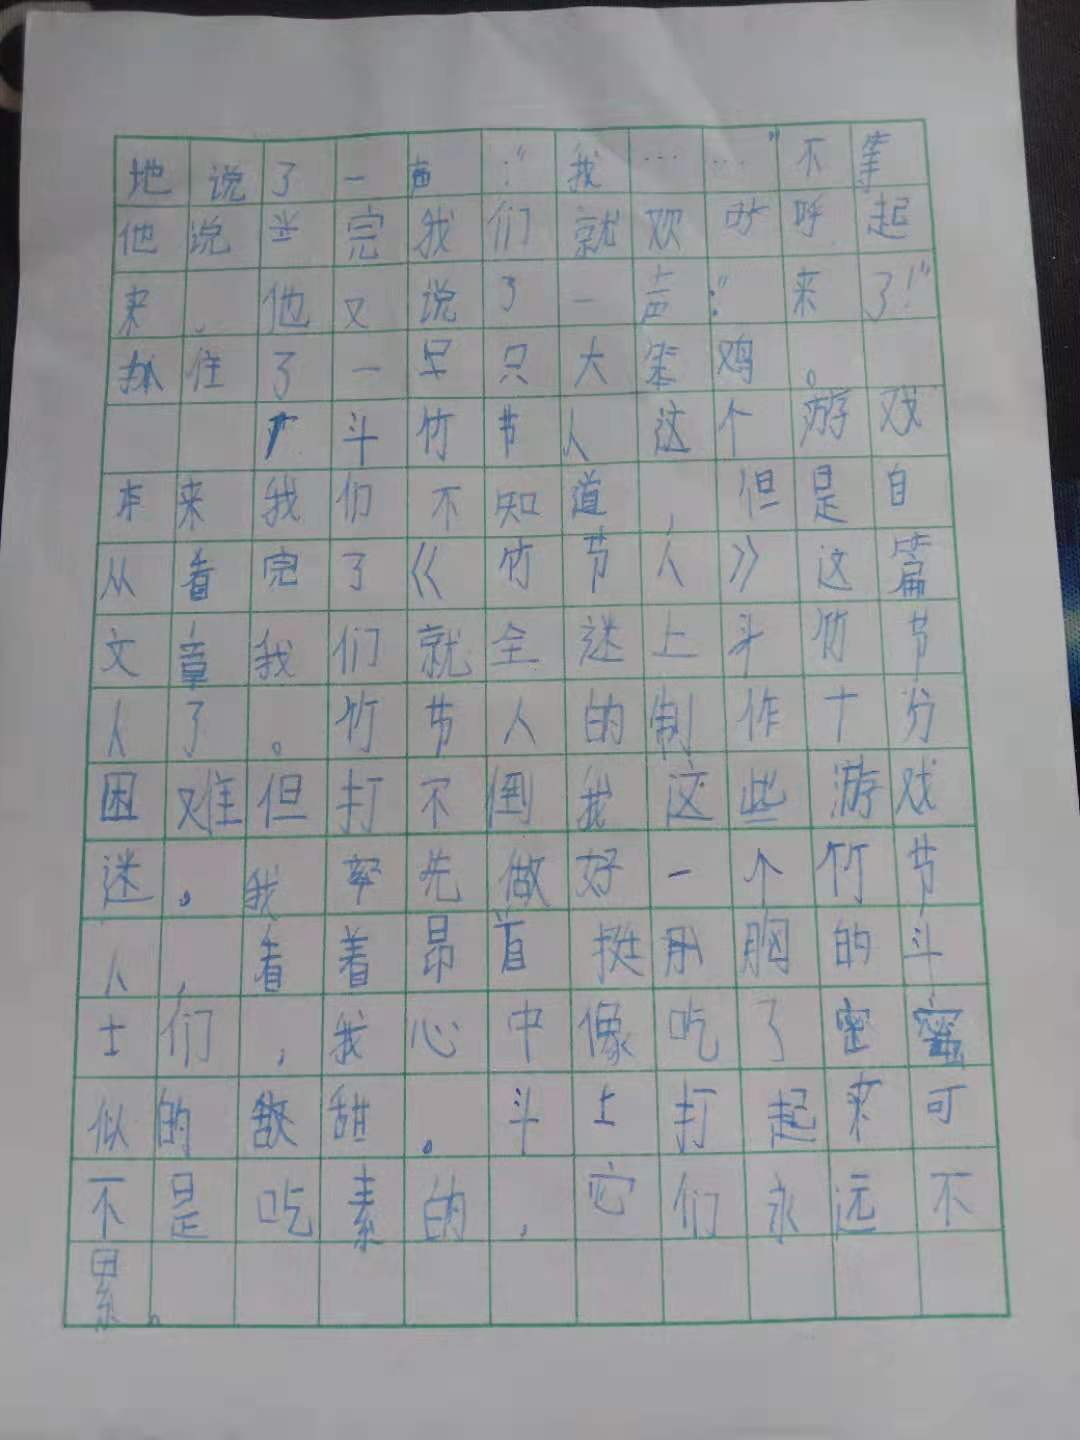 地说了一声:“我……”不等
他说完我们就欢呼起
来,他又说了一声:“来了!”
抓住了一只大笨鸡。
斗竹节人这个游戏
本来我们不知道,但是自
从看完了《竹节人》这篇
文章我们就全迷上斗竹节
人了。竹节人的制作十分
困难但打不倒我这些游戏
迷。我率先做好一个竹节
人,看着昂首挺胸的斗
士们,我心中像吃了蜜
似的甜。斗士打起来可
不是吃素的,它们永远不
累。